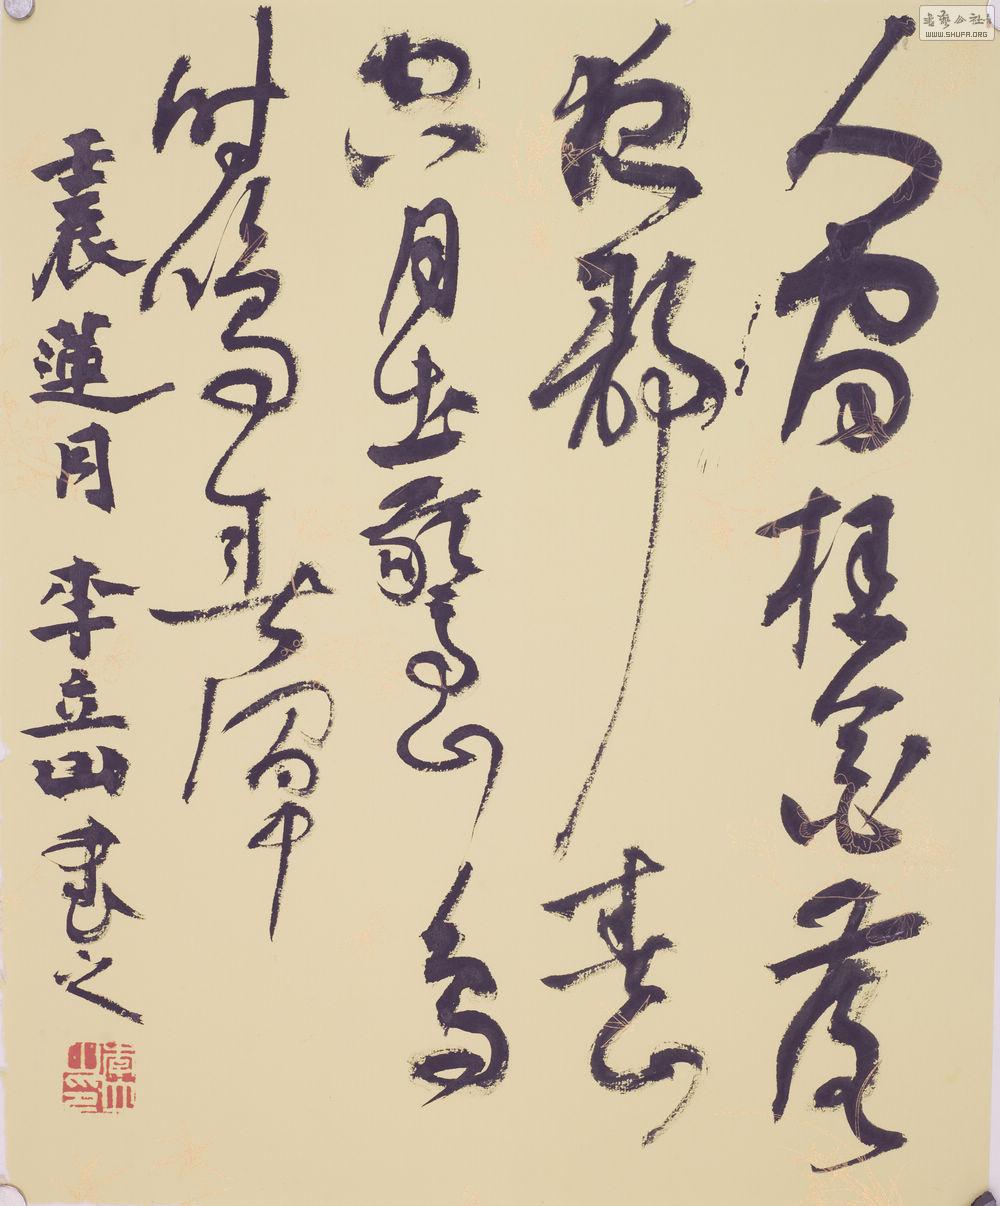 人閒桂花落
夜靜春山
空月出驚山鳥
時鳴春澗中
壬辰蓮月 李立山書之
書藝公社
WWW.SHUFA.ORG